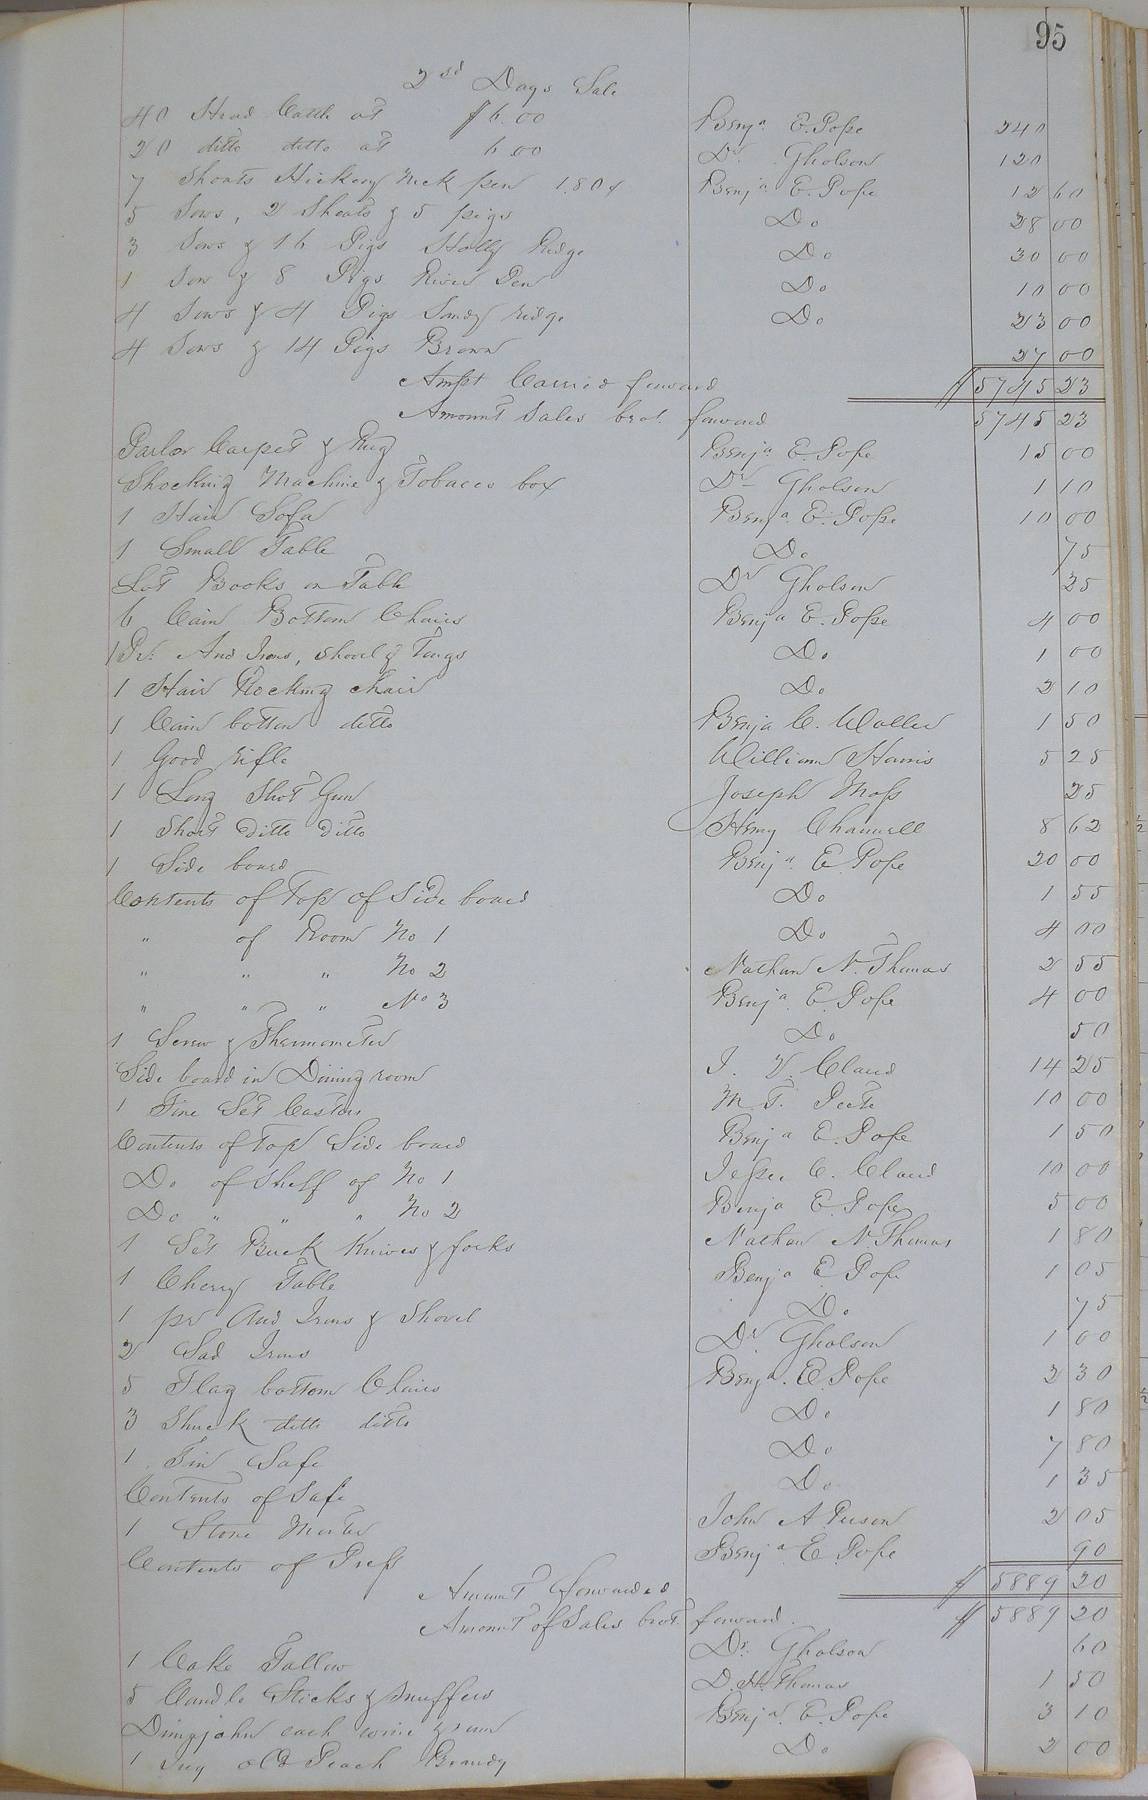 95
2nd Days Sale
40 Head Cattle at $6.00 Benja E. Pope 240
20 ditto ditto at 6.00 Dr. Gholson 120
7 Shoats Hickory Neck pen 1.80¢ Benja E. Pope 12 60
5 Sows, 2 Shoats & 5 pigs Do 28 00
3 Sows & 16 Pigs Holly Ridge Do 30 00
1 Sow & 8 Pigs River Pen Do 10 00
4 Sows & 4 Pigs Sandy ridge Do 23 00
4 Sows & 14 Pigs Brown 27 00
Amt Carried forward $5745 23
Amount Sales brot. forward 5745 23
Parlor Carpet & Rug Benja E. Pope 15 00
Shocking Machine & Tobacco box Dr Gholson 1 10
1 Hair Sofa Benja E. Pope 10 00
1 Small Table Do 75
Lot Books on Table Dr Gholson 25
6 Cain Bottom Chairs Benja E. Pope 4 00
1 Pr. And Irons, Shovel & Tongs Do 1 00
1 Hair Rocking chair Do 2 10
1 Cain bottom ditto Benja C. Waller 1 50
1 Good rifle William Harris 5 25
1 Long Shot Gun Joseph Moss 25
1 Short Ditto Ditto Henry Channell 8 62
1 Side board Benja E. Pope 20 00
Contents of Top of Side board Do 1 55
" of Room No 1 Do 4 00
" " " No 2 Nathan N. Thomas 2 55
" " " No 3 Benja E. Pope 4 00
1 Screw & Thermometer Do 50
Side board in Dining room J. V. Claud 14 25
1 Fine Set Castors M. T. Peete 10 00
Contents of Top Side board Benja E. Pope 1 50
Do of Shelf of No 1 Jesse C. Claud 10 00
Do " " " No 2 Benja E. Pope 5 00
1 Set Buck Knives & forks Nathan N Thomas 1 80
1 Cherry Table Benja E. Pope 1 05
1 pr And Irons & Shovel Do 75
2 Sad Irons Dr Gholson 1 00
5 Flag bottom Chairs Benja. E. Pope 2 30
3 Shuck ditto ditto Do 1 80
1 Tin Safe Do 7 80
Contents of Safe Do 1 35
1 Stone Mortar John A Person 2 05
Contents of Press Benja E. Pope 90
Amount Forwarded $5889 20
Amount of Sales brot. forward. $5889 20
1 Cake Tallow Dr. Gholson 60
5 Candle Sticks & Snuffers D. H. Thomas 1 50
Dimyjohn each wine & rum Benja. E. Pope 3 10
1 Jug old Peach Brandy Do 2 00